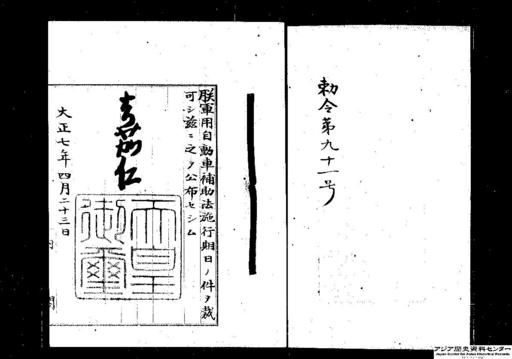 勅令第九十一号
朕軍用自動車補助法施行期日ノ件ヲ裁
可シ茲ニ之ヲ公布セシム
嘉仁
天皇御璽
大正七年四月二十三日
内
閣
アジア歴史資料センター
Japan Center for Asian Historical Records